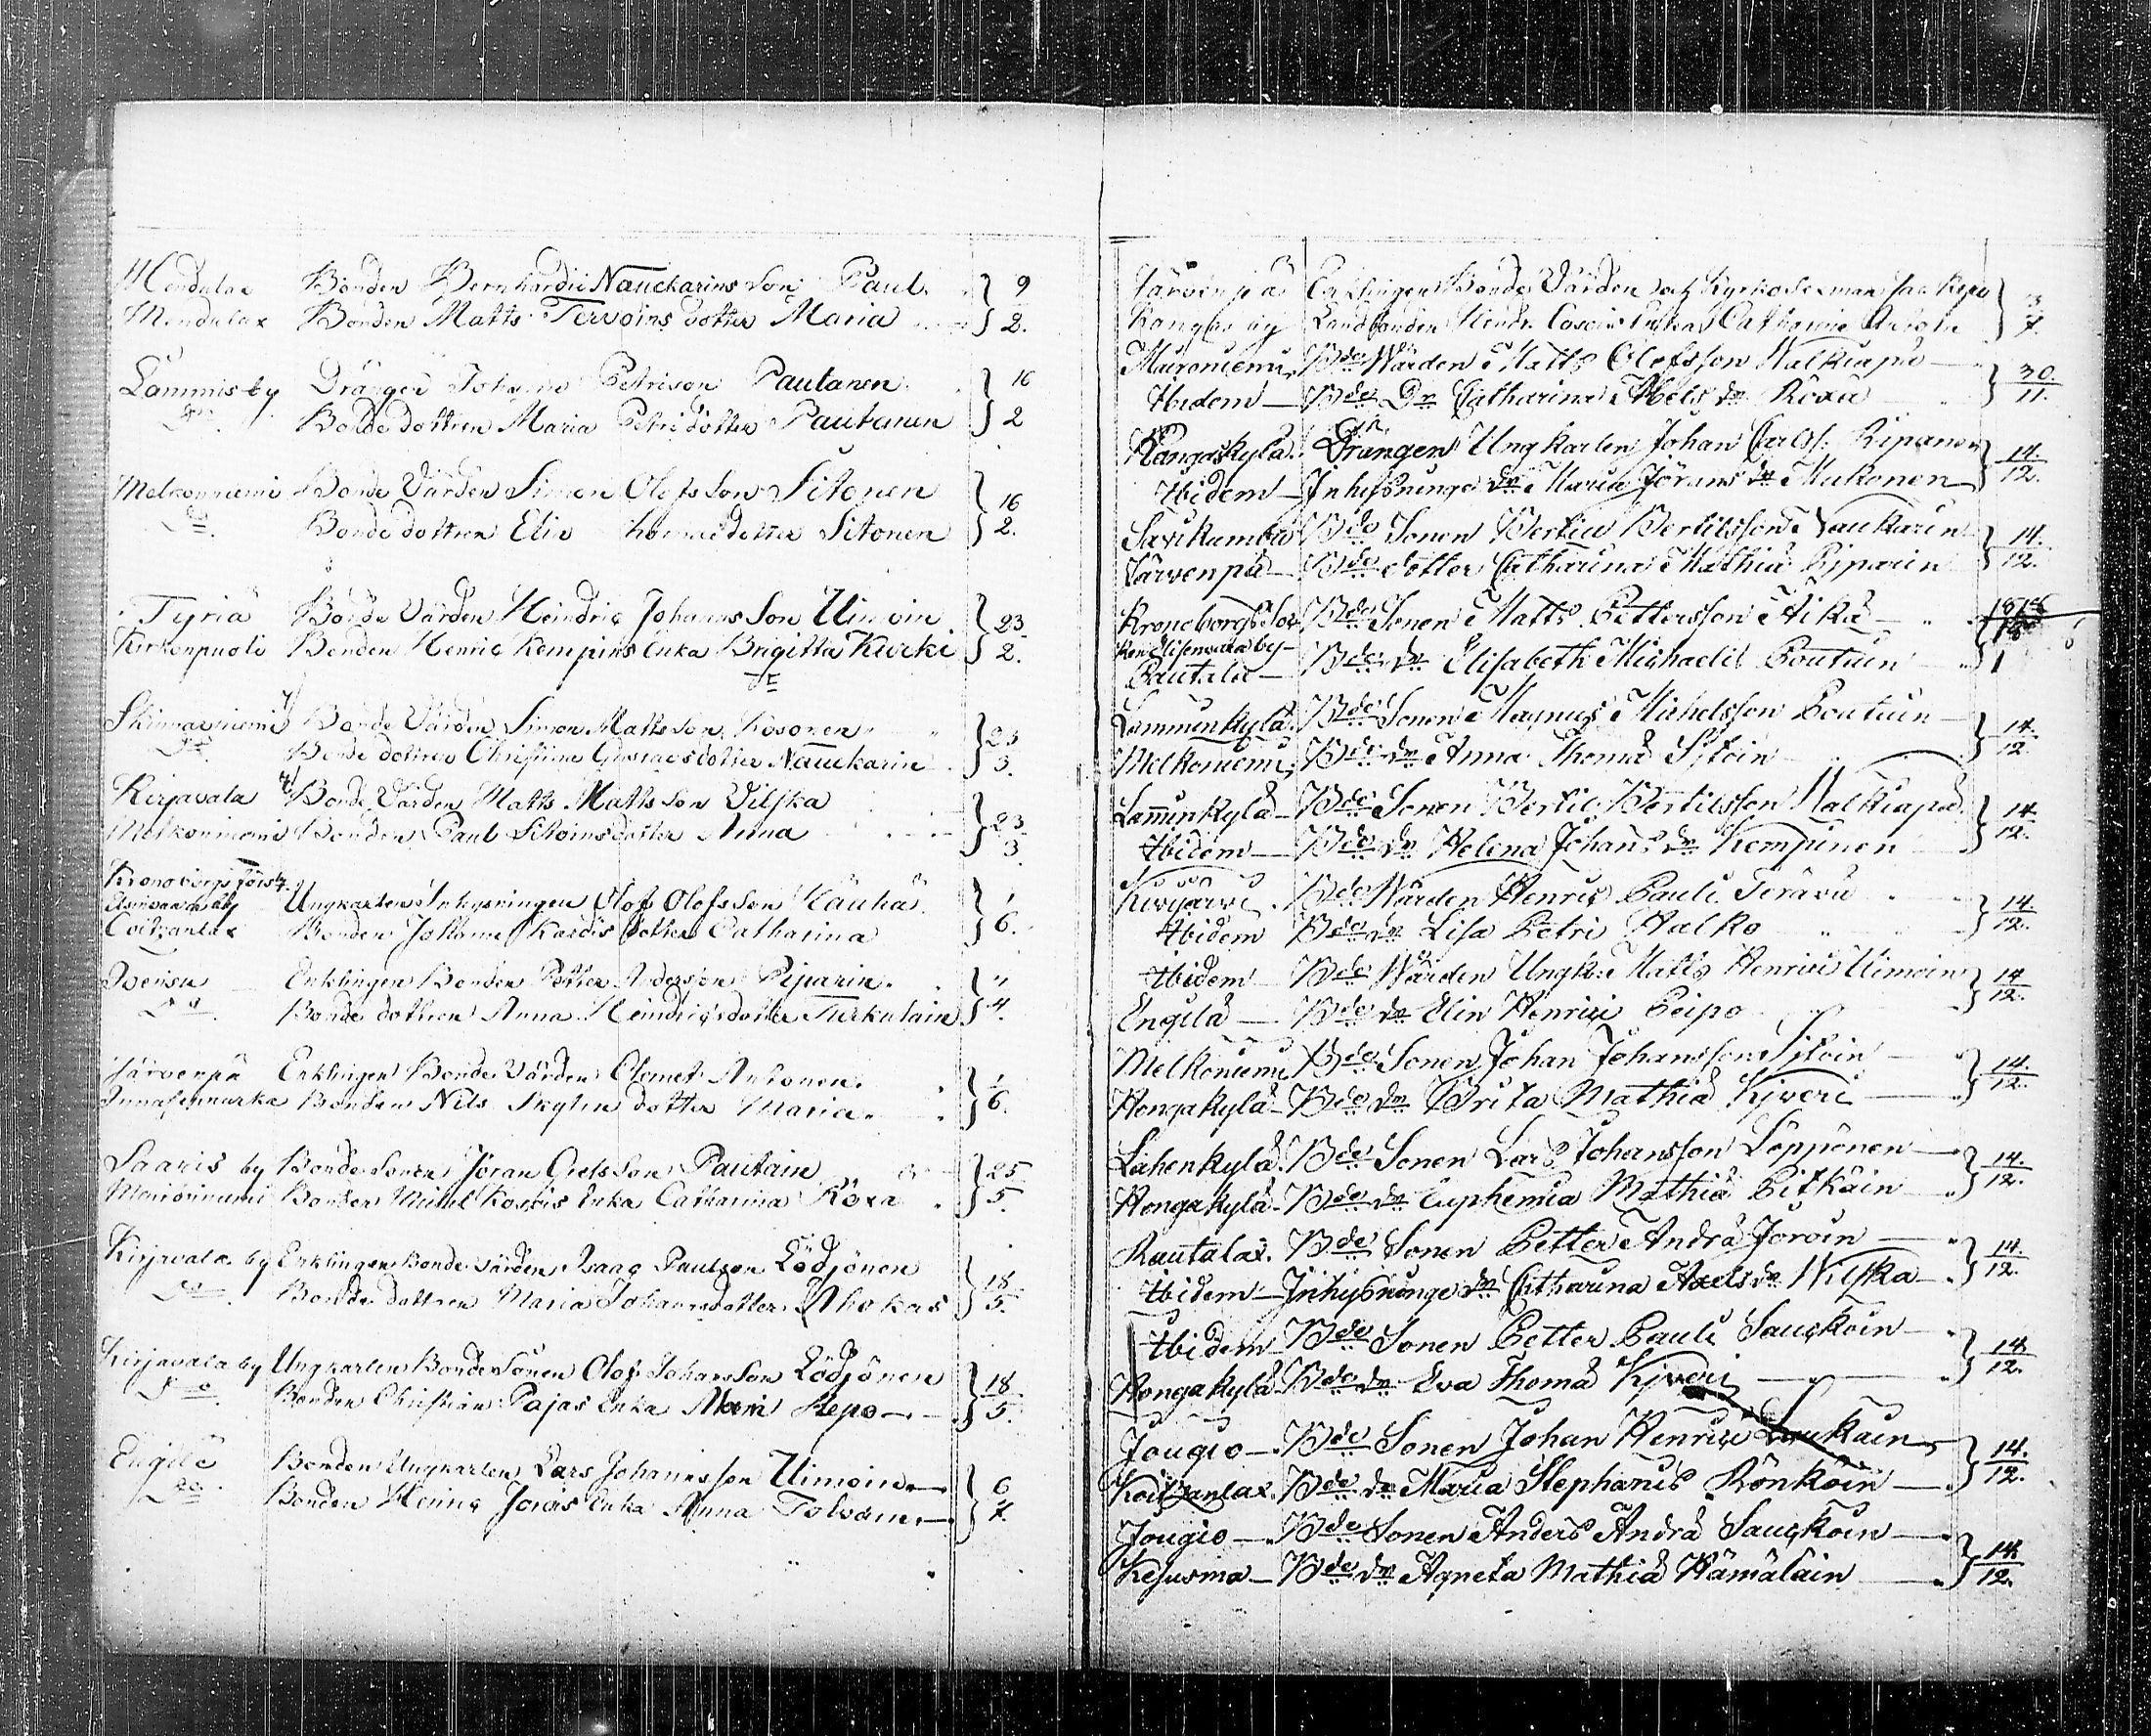 Mendulax Bonden Bernhardii Nauckarins Son Paul } 9
Mendulax Bonden Matts Tervoins dotter Maria } 2.
Lammis by Drängen Johann Petrison Pautanen } 16
Do Bonde dottren Maria Petri dotter Pautanen } 2
Melkonniemi Bonde Värden Simon Olofs Son Sitonen } 16
Do Bonde dottren Elin Thomæ dotter Sitonen } 2.
Tyriä Bonde Värden Heindric Johans Son Uimoin } 23
Kirkonpuoli Bonden Henric Kempins Enka Brigitta Kurki } 2.
Bonde Värden Simon Matts Son Kosonen } 23
Do Bonde dottren Christina Gustavs dotter Nauckarin } 3.
Kirjavala Bonde Värden Matts Matts Son Vilska } 23
Melkonniemi Bonden Paul Sitoins dotter Anna } 3.
Kronoborgs
Ungkarlen Inhysningen Olof Olofs Son Käuhä } 1
Coitzanlax Bonden Johann Kardis dotter Catharina } 6.
Enklingen Bonden Petter Andersson Piparin
Do Bonde dottren Anna Heindrics dotter Turkulain } 4.
Järvenpä Enklingen Bonde Värden Clemet Antonen } 1
Bonden Nils dotter Maria } 6.
Saaris by Bonde Sonen Jöran Grels Son Pautain } 25
Bonden Michel Enka Catharina Röxa } 5.
Kirjavala by Enklingen Bonde Värden Isaac Paulson Lödjönen } 18
Do Bonde dottren Maria Johans dotter Ahokas } 5.
Kirjavala by Ungkarlen Bonde Sonen Olof Johansson Lödjönen } 18
Do Bonden Christian Pajas Enka Maria Repo } 5.
Engilä Bonden Ungkarlen Lars Johansson Uimoin } 6
Do Bonden Henric Enka Anna Tolvanen } 7.
Järvenpä Enklingen Bonde Värden och Kyrko Sexman Isac Repo } 3
by Landbonden Enka Catharina } 7.
Muroniemi Bde Wärden Matts Olofsson Malkiapä } 30.
Ibidem Bde Dr Catharina Abels dr Röxa } 11.
Kangaskylä Drängen Ungkarlen Johan Carls: Ripanen } 14.
Ibidem Inhysninge dr Maria Jörans dr Mukonen } 12.
Savikumbu Bde Sonen Bertill Bertilsson Naukarin } 14.
Järvenpä Bde dotter Catharina Mathiæ Piparin } 12.
Kronoborgs Bde Sonen Matts Pettersson Aikä
by
Pautala Bde dr Elisabeth Michaelis Poutuin } 1
Lammunkylä Bde Sonen Magnus Michelsson Poutuin } 14.
Melkoniemi Bde dr Anna Thomæ Sitoin } 12.
Lamunkylä Bde Sonen Bertil Bertilsson Malkiapä } 14.
Ibidem Bde dr Helena Johans dr Kempinen } 12.
Kivijärvi Bde Wärden Henric Pauli Terävä } 14.
Ibidem Bde dr Lisa Petri Halko } 12.
Ibidem Bde Wärden Ungk: Matts Henrici Uimoin } 14
Engilä Bde dr Elin Henrici Peipo } 12.
Melkoniemi Bde Sonen Johan Johansson Sitoin } 14.
Hongakylä Bde dr Brita Mathiæ Kiveri } 12.
Lahenkylä Bde Sonen Lars Johansson Lopponen } 14.
Hongakylä Bde dr Euphemia Mathiæ Pitkäin } 12.
Rautalax Bde Sonen Petter Andræ Joroin } 14.
Ibidem Inhysninge dr Catharina Axels dr Wilska } 12.
Ibidem Bde Sonen Petter Pauli Sauckoin } 14
Hongakylä Bde dr Eva Thomæ Kiveri } 12.
Jougio Bde Sonen Johan Henrici Laukain } 14.
Koitzanlax Bde dr Maria Stephanis Rönköin } 12.
Jougio Bde Sonen Anders Andræ Sauckoin } 14
Kesusma Bde dr Agneta Mathiæ Hämäläin } 12.